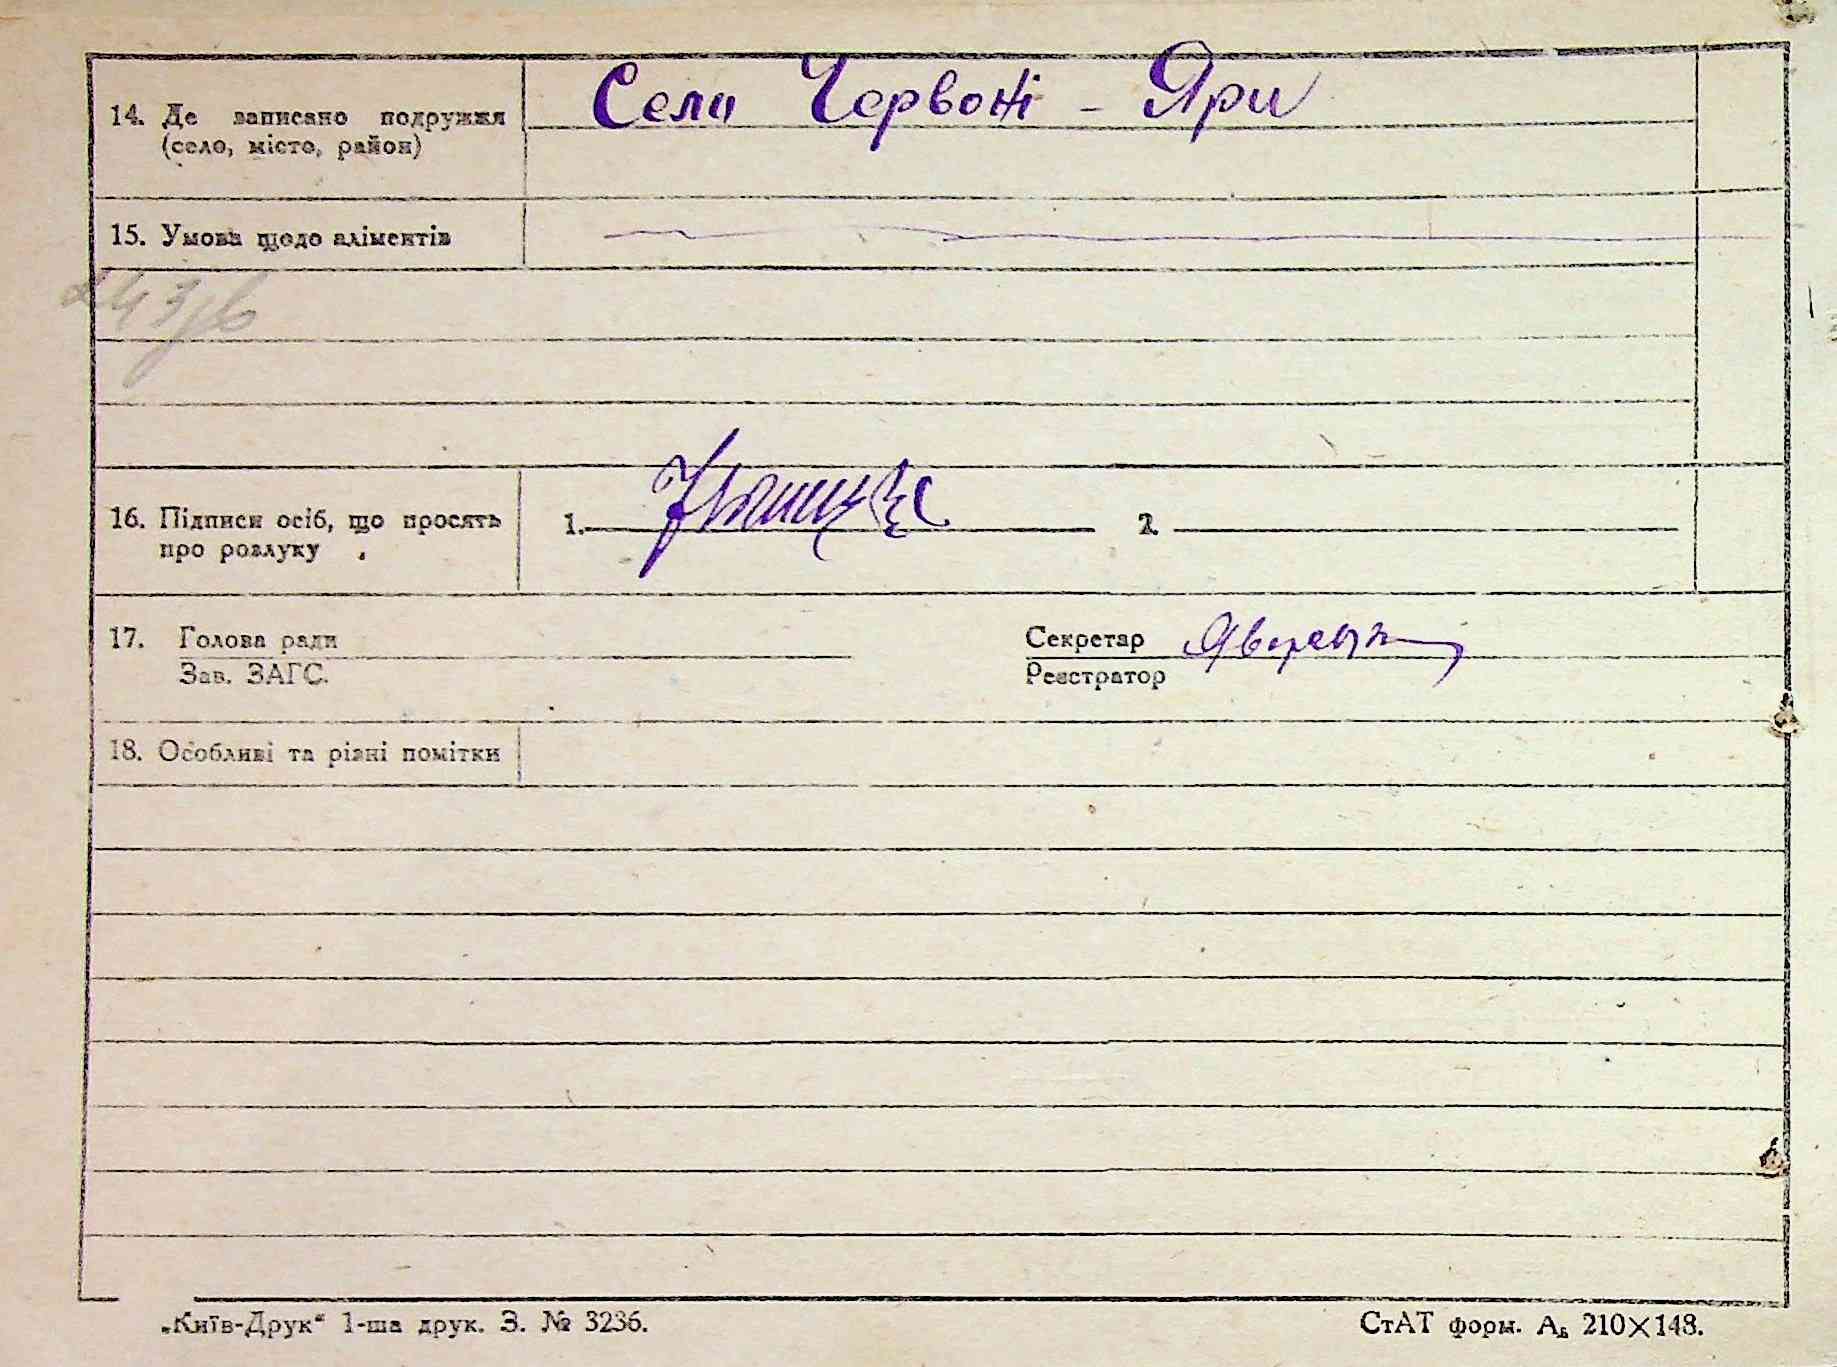 14. Де записано подружжя
(село, місто, район)
Село Червоні - Яри
15. Умова щодо аліментів
16. Підписи осіб, що просять
про розлуку
1.
2.
17. Голова ради
Зав. ЗАГС.
Секретар
Реєстратор
18. Особливі та різні помітки
„Київ-Друк“ 1-ша друк. З. № 3236.
СтАТ форм. А₅ 210×148.